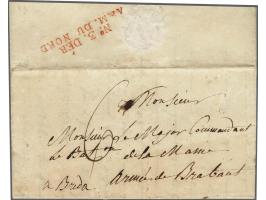 No. 3. DER
ARM. DU NORD
Monsieur
Monsieur le Major Commandant
le Bat^on de la Marne
a Breda Armée de Brabant